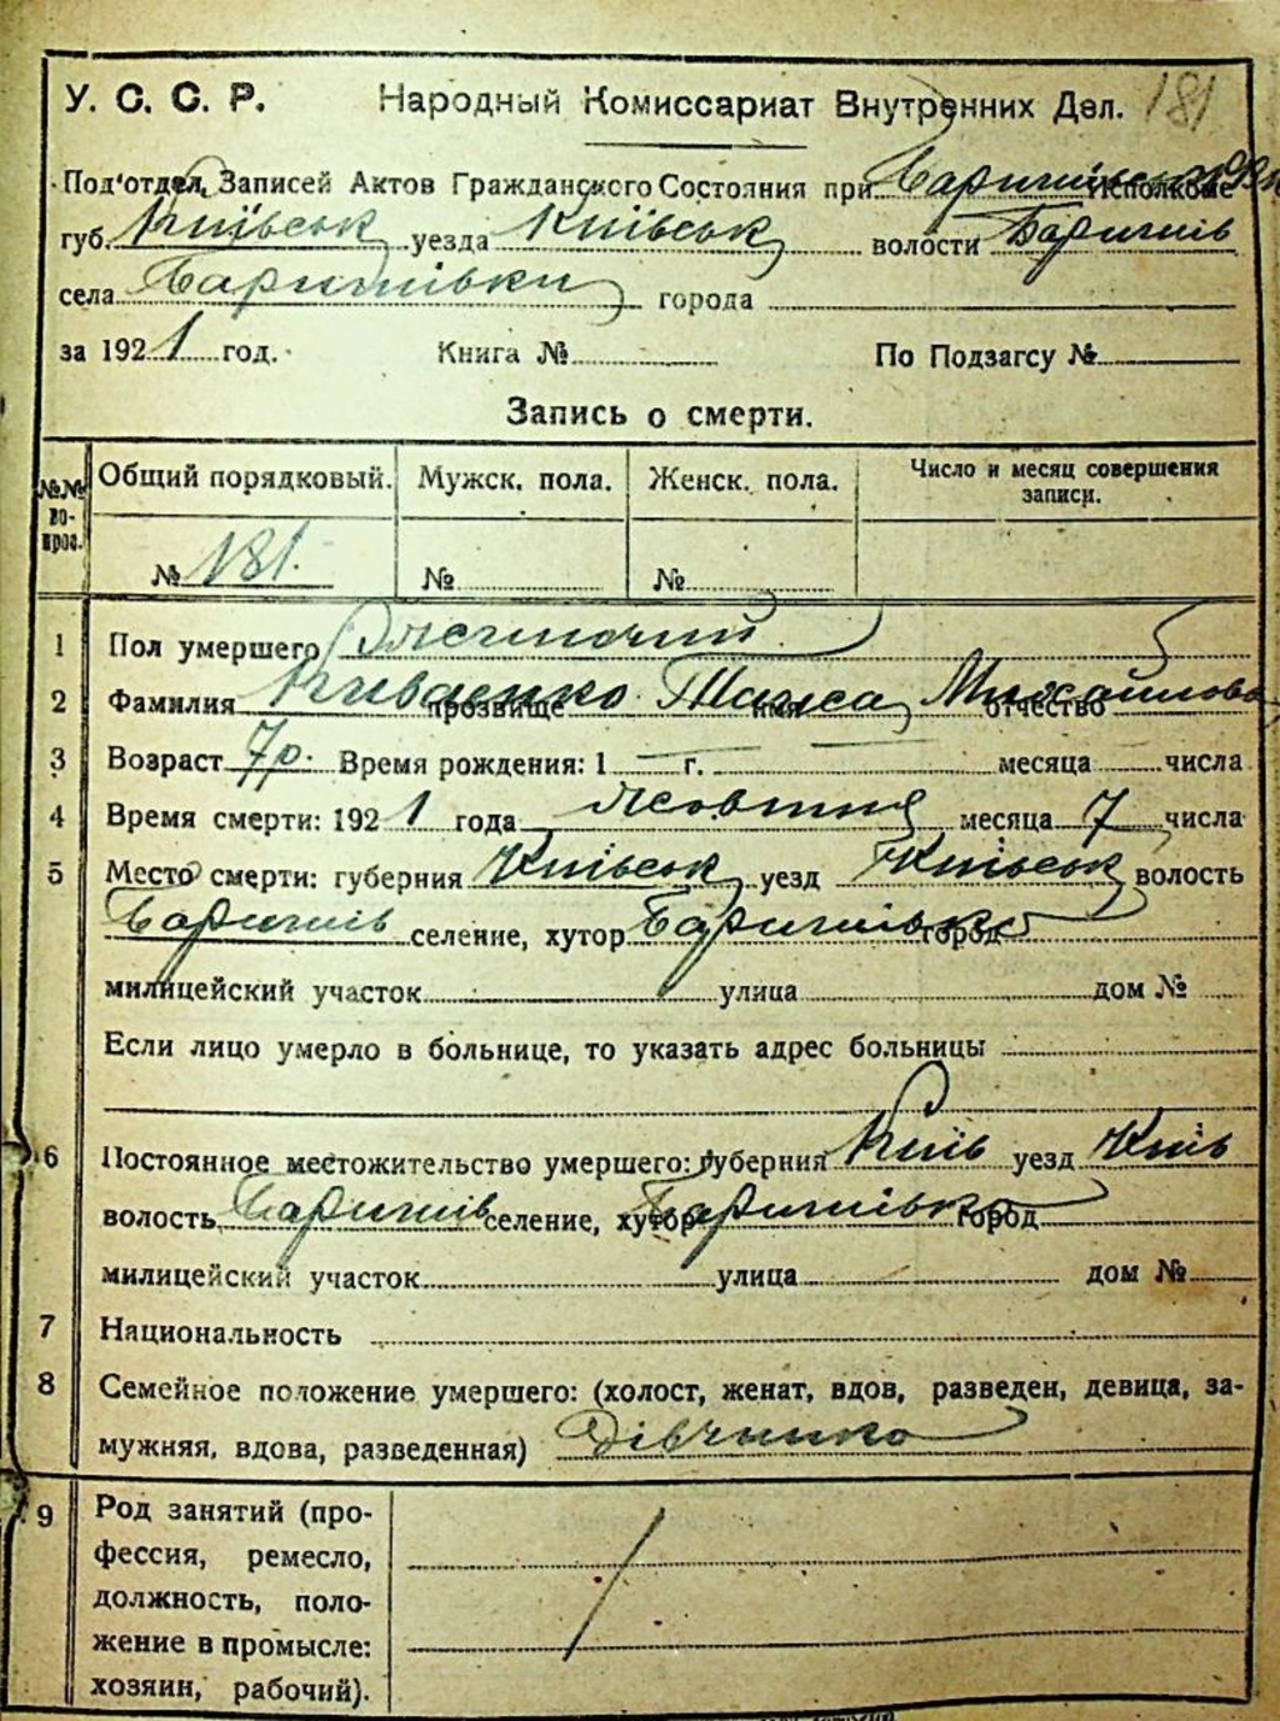 У. С. С. Р. Народный Комиссариат Внутренних Дел. 181
Под'отдел Записей Актов Гражданского Состояния при Исполкоме
губ. Київськ уезда Київськ волости Баришів
села Баришівки города
за 1921 год. Книга № По Подзагсу №
Запись о смерти.
№№ во-прос. Общий порядковый. Мужск. пола. Женск. пола. Число и месяц совершения записи.
№ 181. № №
1 Пол умершего Жіночий
2 Фамилия прозвище имя Михайлова отчество
3 Возраст 7 р. Время рождения: 1 г. месяца числа
4 Время смерти: 1921 года Жовтня месяца 7 числа
5 Место смерти: губерния Київськ уезд Київськ волость
Баришів селение, хутор Баришівка город
милицейский участок улица дом №
Если лицо умерло в больнице, то указать адрес больницы
6 Постоянное местожительство умершего: губерния Київ уезд Київ
волость Баришів селение, хутор Баришівка город
милицейский участок улица дом №
7 Национальность
8 Семейное положение умершего: (холост, женат, вдов, разведен, девица, за-
мужняя, вдова, разведенная) Дівчинка
9 Род занятий (про-
фессия, ремесло,
должность, поло-
жение в промысле:
хозяин, рабочий).